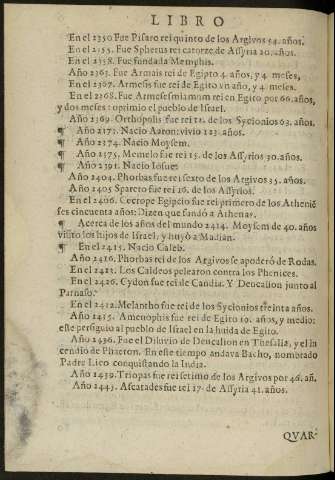 LIBRO
En el 2350 Fue Pisaro rei quinto de los Argivos 54. años.
En el 2355. Fue Spherus rei catorze de Assyria 20. años.
En el 2358. Fue fundada Memphis.
Año 2363. Fue Armais rei de Egipto 4. años, y 4. meses,
En el 2367. Armesis fue rei de Egito vn año, y 4. meses.
En el 2368. Fue Armesesmiamum rei en Egito por 66. años,
y dos meses: oprimio el pueblo de Israel.
Año 2369. Orthopolis fue rei 12. de los Sycionios 63. años.
¶ Año 2371. Nacio Aaron: vivio 123. años.
¶ Año 2374. Nacio Moysem.
¶ Año 2375. Memelo fue rei 15. de los Assyrios 30. años.
¶ Año 2391. Nacio Iosue.
Año 2404. Phorbas fue rei sexto de los Argivos 35. años.
Año 2405 Spareto fue rei 16. de los Assyrios.
En el 2406. Cecrope Egipcio fue rei primero de los Athenie
ses cincuenta años: Dizen que fundó a Athenas.
¶ Acerca de los años del mundo 2414. Moysem de 40. años
visitò los hijos de Israel, y huyò a Madian.
¶ En el 2415. Nacio Caleb.
Año 2416. Phorbas rei de los Argivos se apoderò de Rodas.
En el 2421. Los Caldeos pelearon contra los Phenices.
En el 2426. Cydon fue rei de Candia. Y Deucalion junto al
Parnaso.
En el 2412. Melantho fue rei de los Sycionios treinta años.
Año 2415. Amenophis fue rei de Egito 19. años, y medio:
este persiguio al pueblo de Israel en la huida de Egito.
Año 2436. Fue el Diluvio de Deucalion en Thesalia, y el in
cendio de Phaeton. En este tiempo andava Bacho, nombrado
Padre Lico conquistando la India.
Año 2439. Triopas fue rei setimo de los Argivos por 46. añ.
Año 2445. Ascatades fue rei 17. de Assyria 41. años.
QVAR-